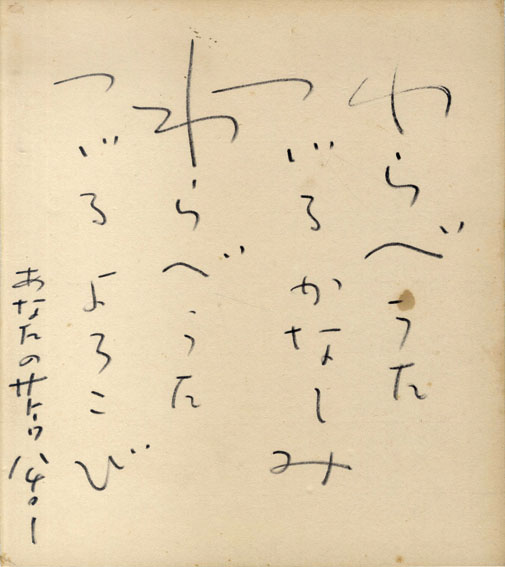 わらべうた
つゞるかなしみ
わらべうた
つゞるよろこび
あなたのサトウハチロー